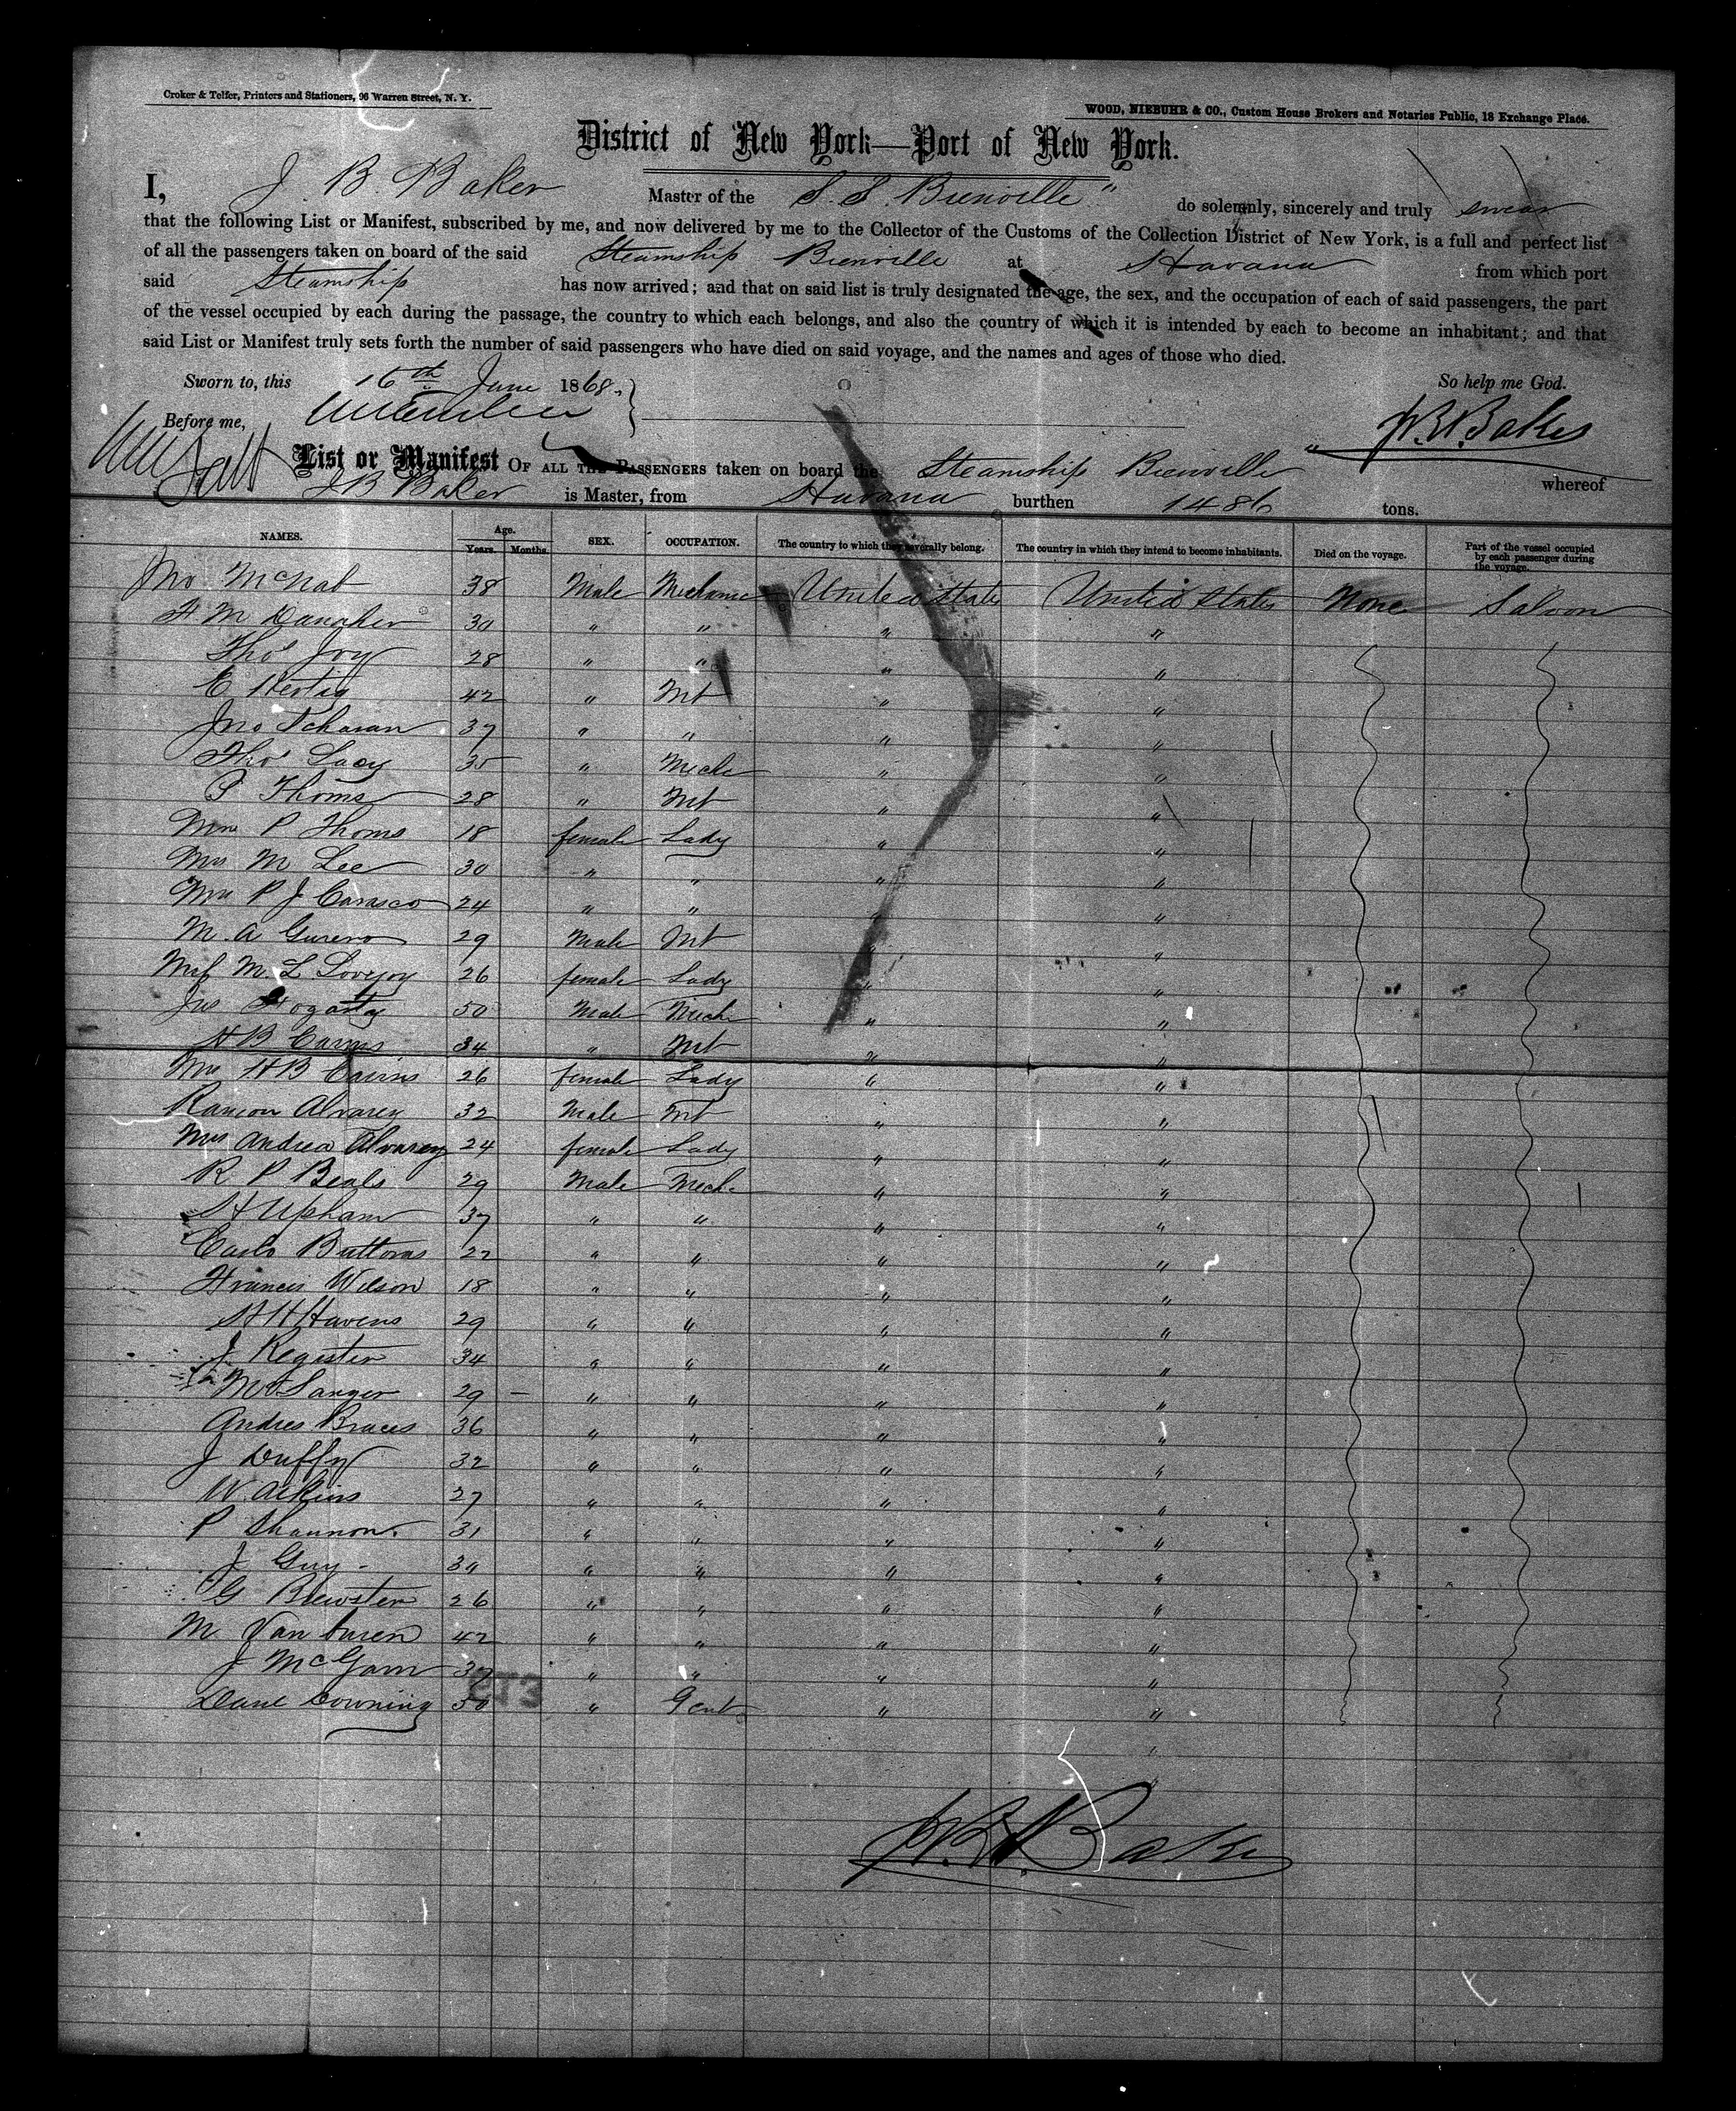 Croker & Telfer, Printers and Stationers, 96 Warren Street, N. Y.
WOOD, NIEBUHR & CO., Custom House Brokers and Notaries Public, 18 Exchange Place.
District of New York—Port of New York.
I, J. B. Baker Master of the S. S. Bienville" do solemnly, sincerely and truly swear
that the following List or Manifest, subscribed by me, and now delivered by me to the Collector of the Customs of the Collection District of New York, is a full and perfect list
of all the passengers taken on board of the said Steamship Bienville at Havana from which port
said Steamship has now arrived; and that on said list is truly designated the age, the sex, and the occupation of each of said passengers, the part
of the vessel occupied by each during the passage, the country to which each belongs, and also the country of which it is intended by each to become an inhabitant; and that
said List or Manifest truly sets forth the number of said passengers who have died on said voyage, and the names and ages of those who died.
Sworn to, this 16th June 1868. So help me God.
Before me, J.B. Baker
List or Manifest OF ALL THE PASSENGERS taken on board the Steamship Bienville whereof
J B Baker is Master, from Havana burthen 1486 tons.
NAMES. Age. Years. Months. SEX. OCCUPATION. The country to which they severally belong. The country in which they intend to become inhabitants. Died on the voyage. Part of the vessel occupied by each passenger during the voyage.
Jno McNab 38 Male Mechanic United States United States None Saloon
F M Danaher 30 " " " "
Thos Joy 28 " " " "
E Hertig 42 " Mt " "
Jno 37 " " " "
Thos Lacy 35 " Mech " "
P Thoms 28 " Mt " "
Mrs P Thoms 18 female Lady " "
Mrs M Lee 30 " " " "
Mrs P J Carasco 24 " " " "
M. A Gurero 29 Male Mt " "
Mrs M. L Lovejoy 26 female Lady " "
Jno Fogarty 50 Male Mech " "
H B Cairns 34 " Mt " "
Mrs H B Cairns 26 female Lady " "
Ramon Alvarez 32 Male Mt " "
Mrs Andrea Alvarez 24 female Lady " "
R P Beals 29 Male Mech. " "
H Upham 37 " " " "
Carlo Buttoms 22 " " " "
Francis Wilson 18 " " " "
H H Havens 29 " " " "
J Register 34 " " " "
M Sanger 29 — " " " "
Andres Braces 36 " " " "
J Duffy 32 " " " "
W. Aikins 27 " " " "
P Shannon. 31 " " " "
J Guy - 30 " " " "
G Brewster 26 " " " "
M. Van buren 42 " " " "
J McGann 37 " " " "
Downing 50 " Gent " "
J.B. Baker